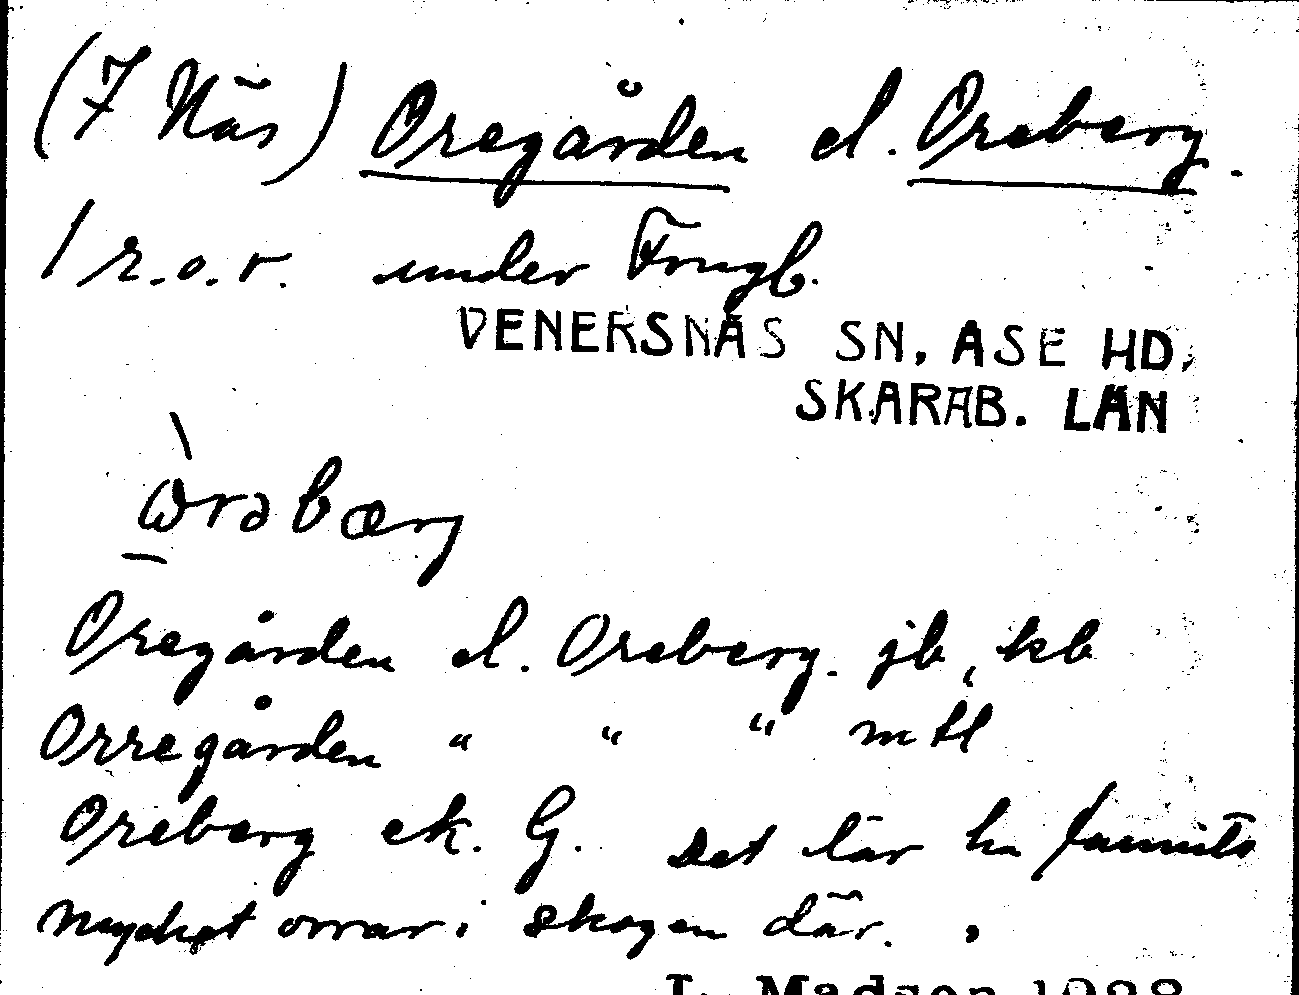 (7 Näs) Oregården el. Oreberg.
1 r.o.r. under Frugb.
VENERSNÄS SN, ASE HD,
SKARAB. LÄN
ὼrəbærj
Oregården el. Oreberg. jb, kb
Orregården “ “ “ mtl
Oreberg ek. G. Det lär ha funnits
mycket orrar i skogen där.
L. Madsen 1928